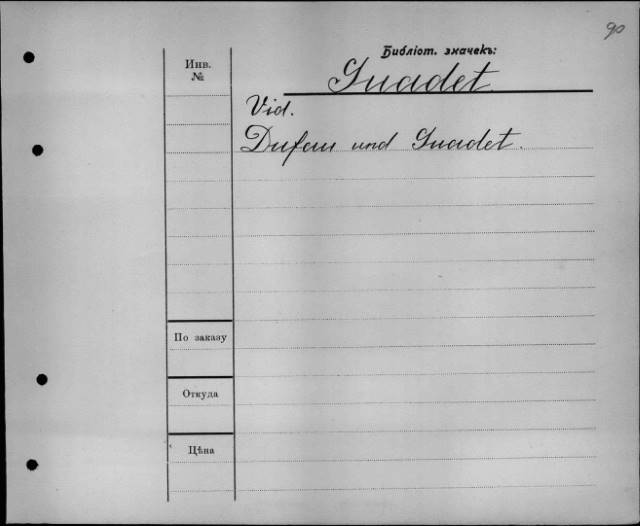 90
Библіот. значекъ:
Guadet
Инв.
№
Vid.
Dufau und Guadet.
По заказу
Откуда
Цѣна